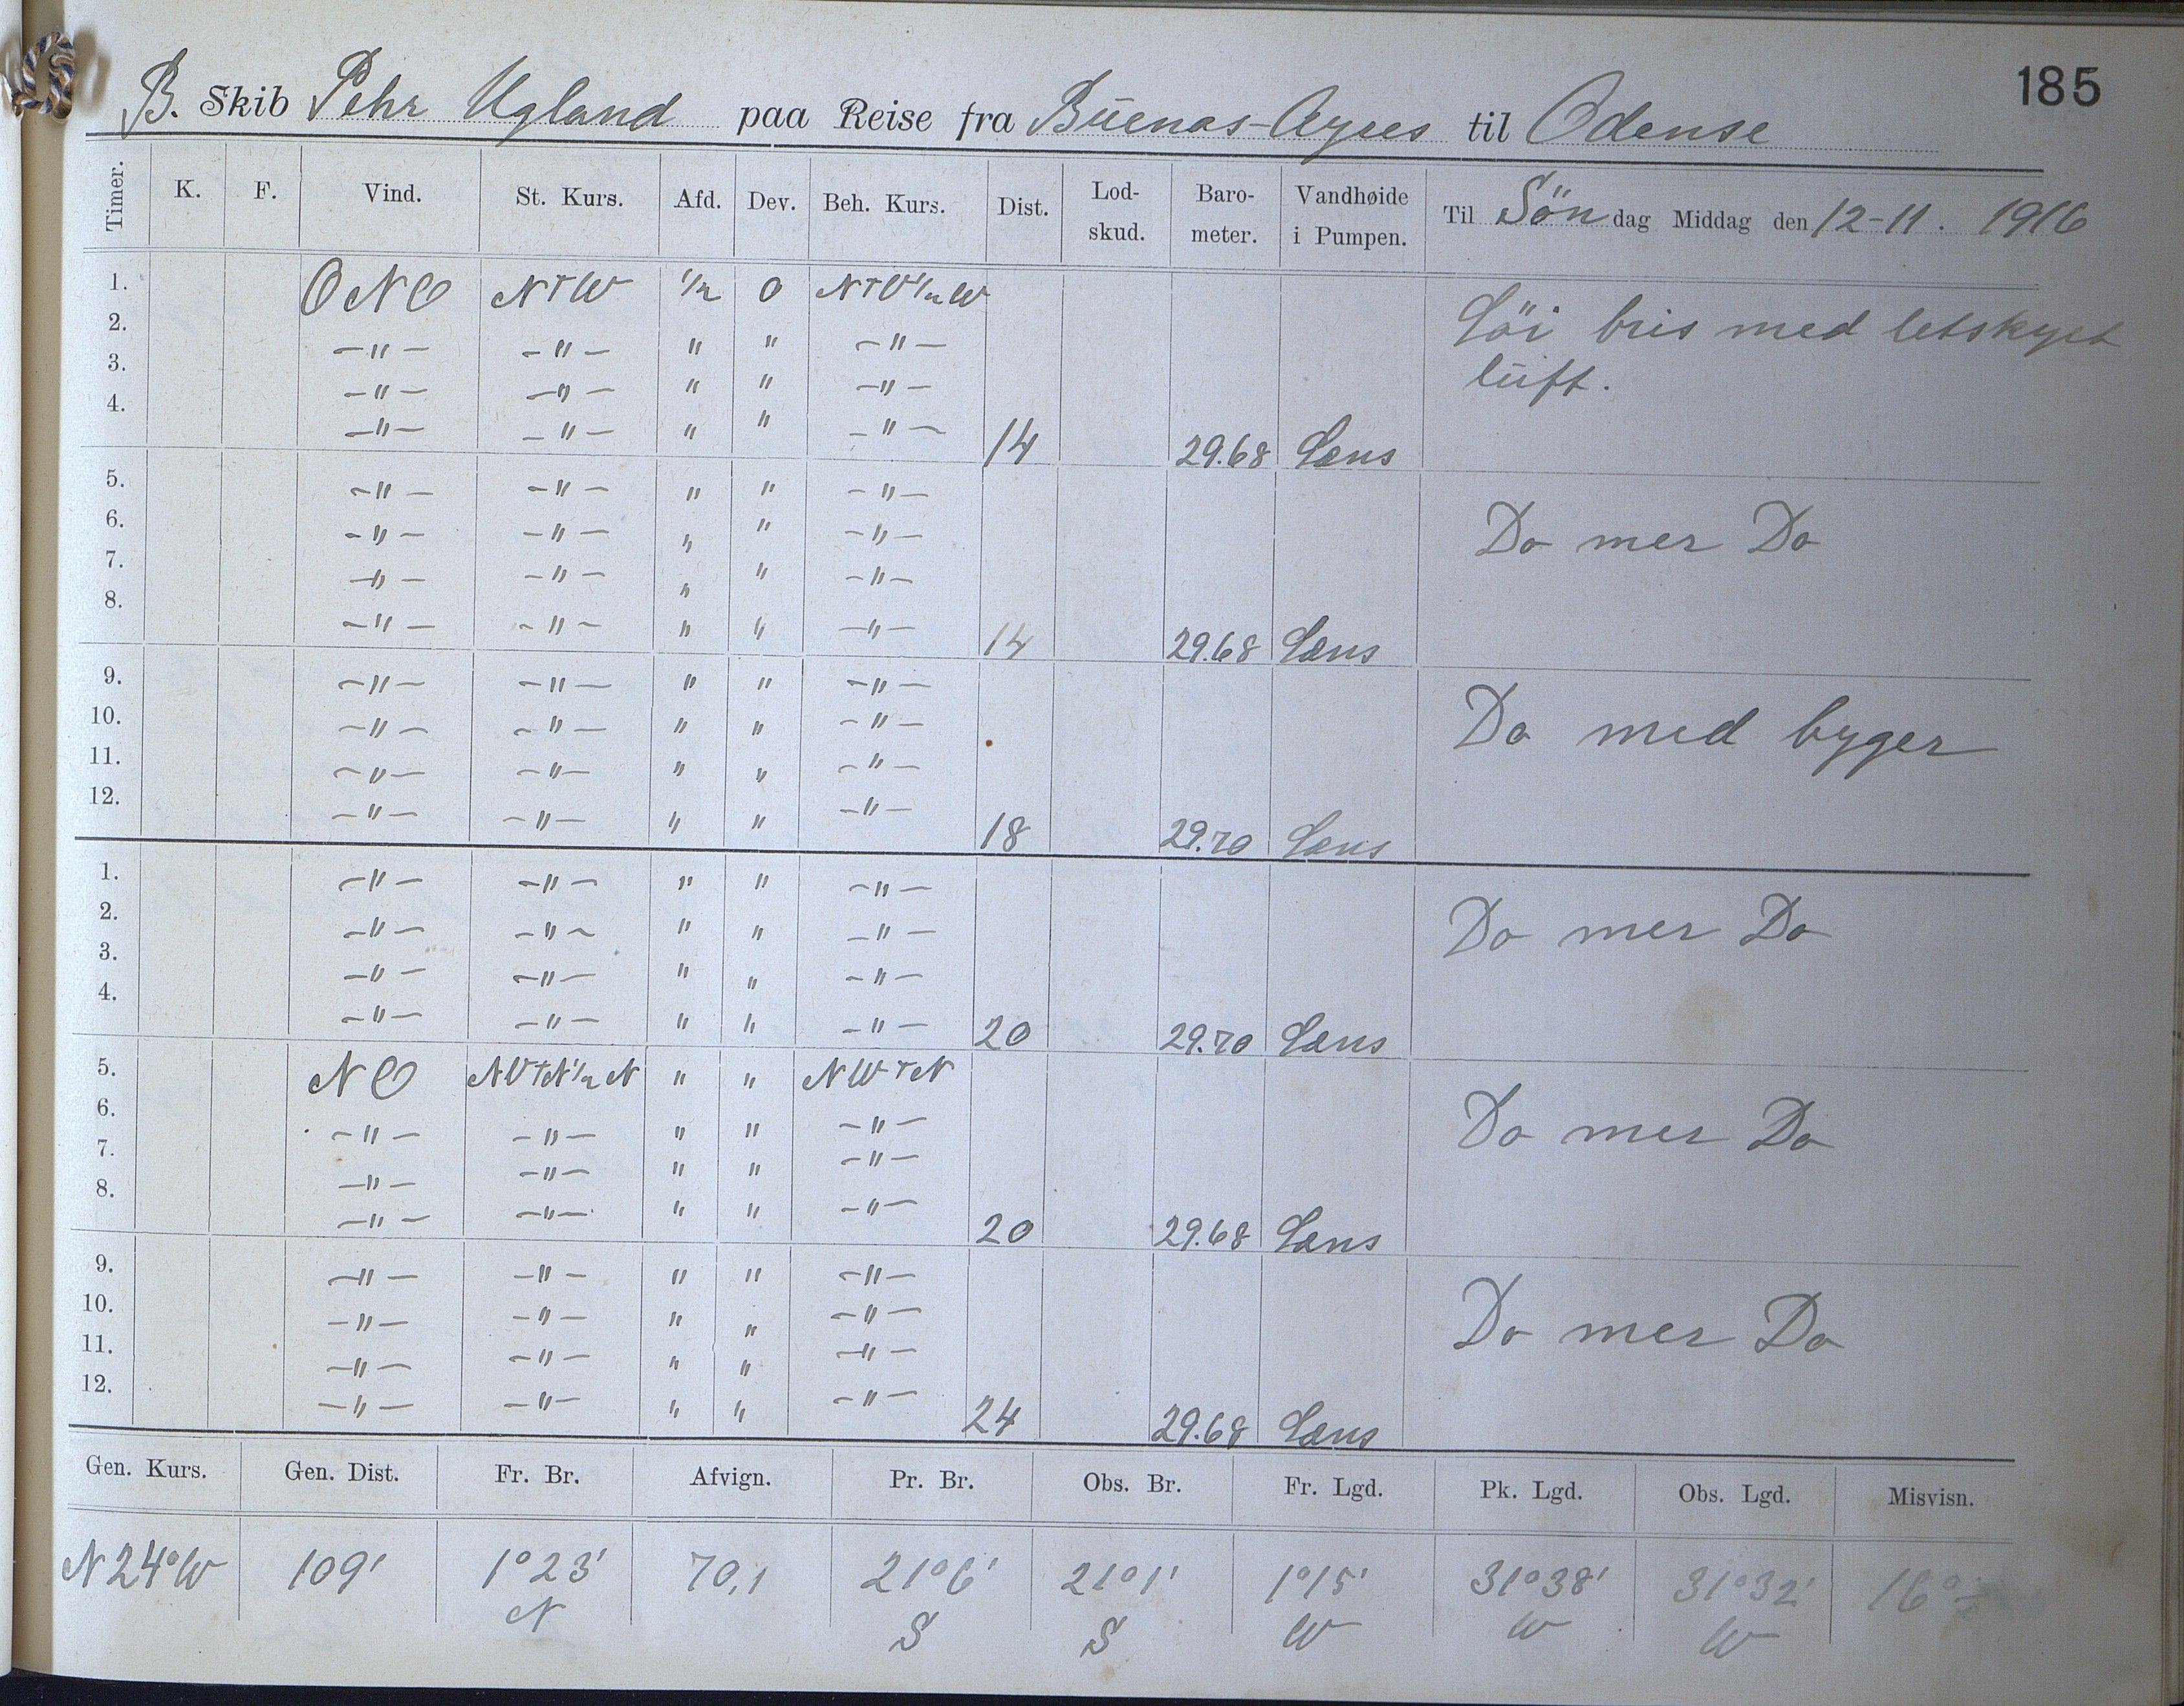 185
B. Skib Pehr Ugland paa Reise fra Buenos-Ayres til Odense
Timer. K. F. Vind. St. Kurs. Afd. Dev. Beh. Kurs. Dist. Lod-skud. Baro-meter. Vandhøide i Pumpen. Til Søndag Middag den 12-11. 1916
1. ONO NTW 1/2 0 NTW1/2W Löi bris med letskyet
2. -"- -"- " " -"- luft.
3. -"- -"- " " -"-
4. -"- -"- " " -"- 14 29.68 Læns
5. -"- -"- " " -"-
6. -"- -"- " " -"- Do mer Do
7. -"- -"- " " -"-
8. -"- -"- " " -"- 14 29.68 Læns
9. -"- -"- " " -"-
10. -"- -"- " " -"- Do med byger
11. -"- -"- " " -"-
12. -"- -"- " " -"- 18 29.70 Læns
1. -"- -"- " " -"-
2. -"- -"- " " -"- Do mer Do
3. -"- -"- " " -"-
4. -"- -"- " " -"- 20 29.70 Læns
5. NO NWTN1/2N " " NWTN
6. -"- -"- " " -"- Do mer Do
7. -"- -"- " " -"-
8. -"- -"- " " -"- 20 29.68 Læns
9. -"- -"- " " -"-
10. -"- -"- " " -"- Do mer Do
11. -"- -"- " " -"-
12. -"- -"- " " -"- 24 29.68 Læns
Gen. Kurs. Gen. Dist. Fr. Br. Afvign. Pr. Br. Obs. Br. Fr. Lgd. Pk. Lgd. Obs. Lgd. Misvisn.
N24°W 109' 1°23' 70,1 21°6' 21°1' 1°15' 31°38' 31°32' 16°÷
N S S W W W